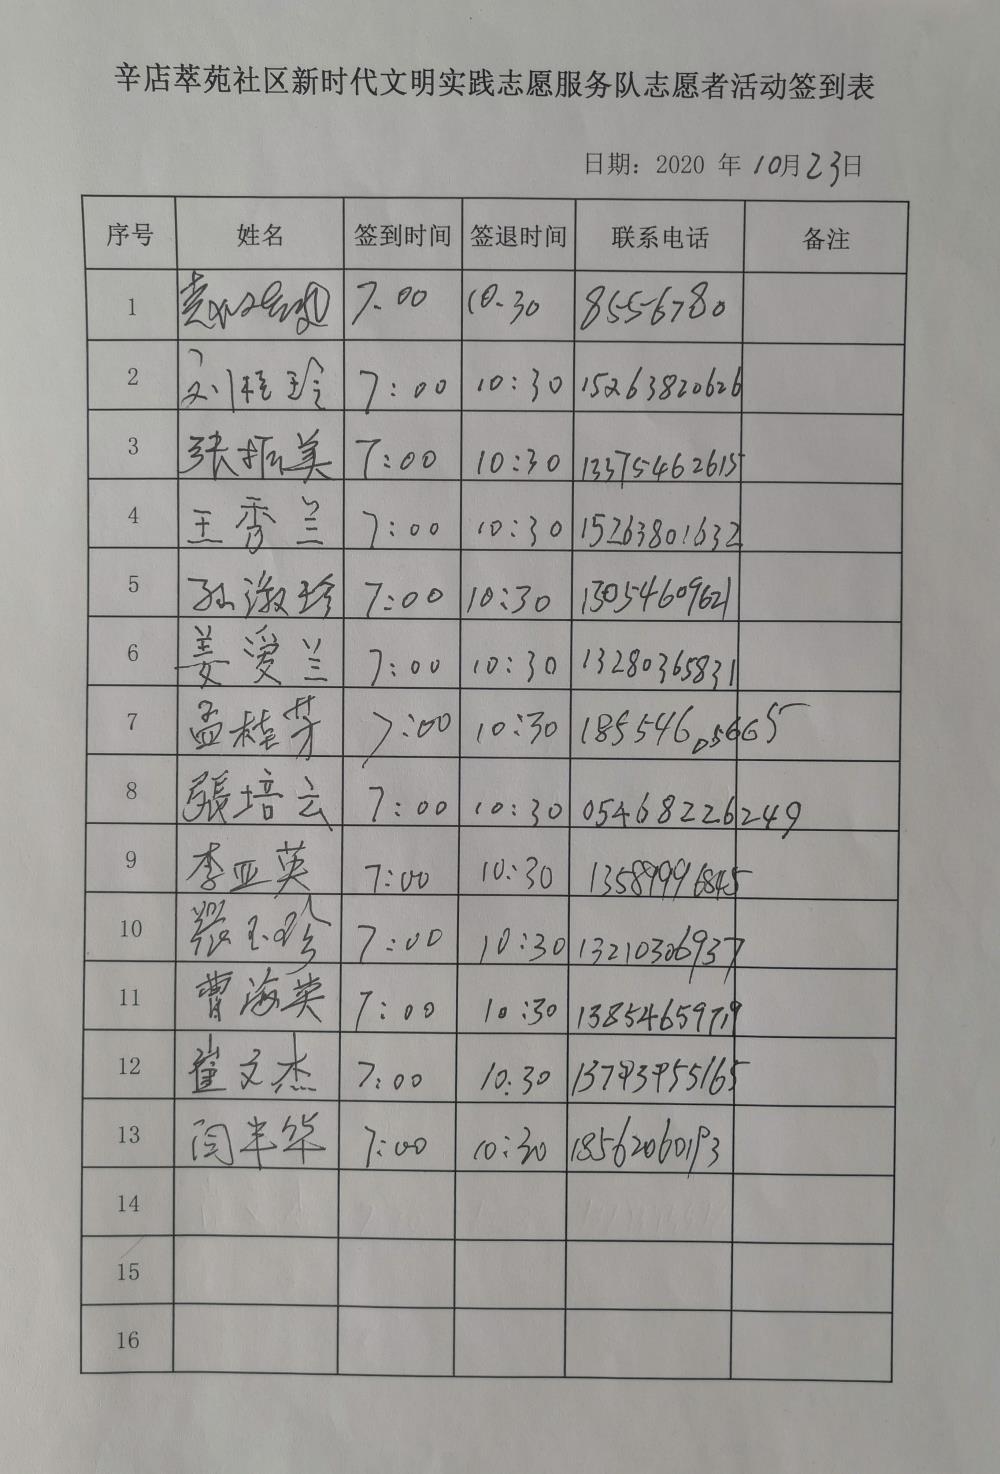 辛店萃苑社区新时代文明实践志愿服务队志愿者活动签到表
日期：2020 年 10月23日
序号 姓名 签到时间 签退时间 联系电话 备注
1 7:00 10:30 8556780
2 刘桂玲 7:00 10:30 15263820626
3 张振美 7:00 10:30 13375462615
4 王秀兰 7:00 10:30 15263801632
5 孙淑珍 7:00 10:30 13054609621
6 姜爱兰 7:00 10:30 13280365831
7 孟桂芳 7:00 10:30 18554605665
8 張培云 7:00 10:30 05468226249
9 李亚英 7:00 10:30 13589996845
10 張玉珍 7:00 10:30 13210306937
11 曹海英 7:00 10:30 13854659719
12 崔文杰 7:00 10:30 13793955165
13 闫半华 7:00 10:30 18562060193
14
15
16